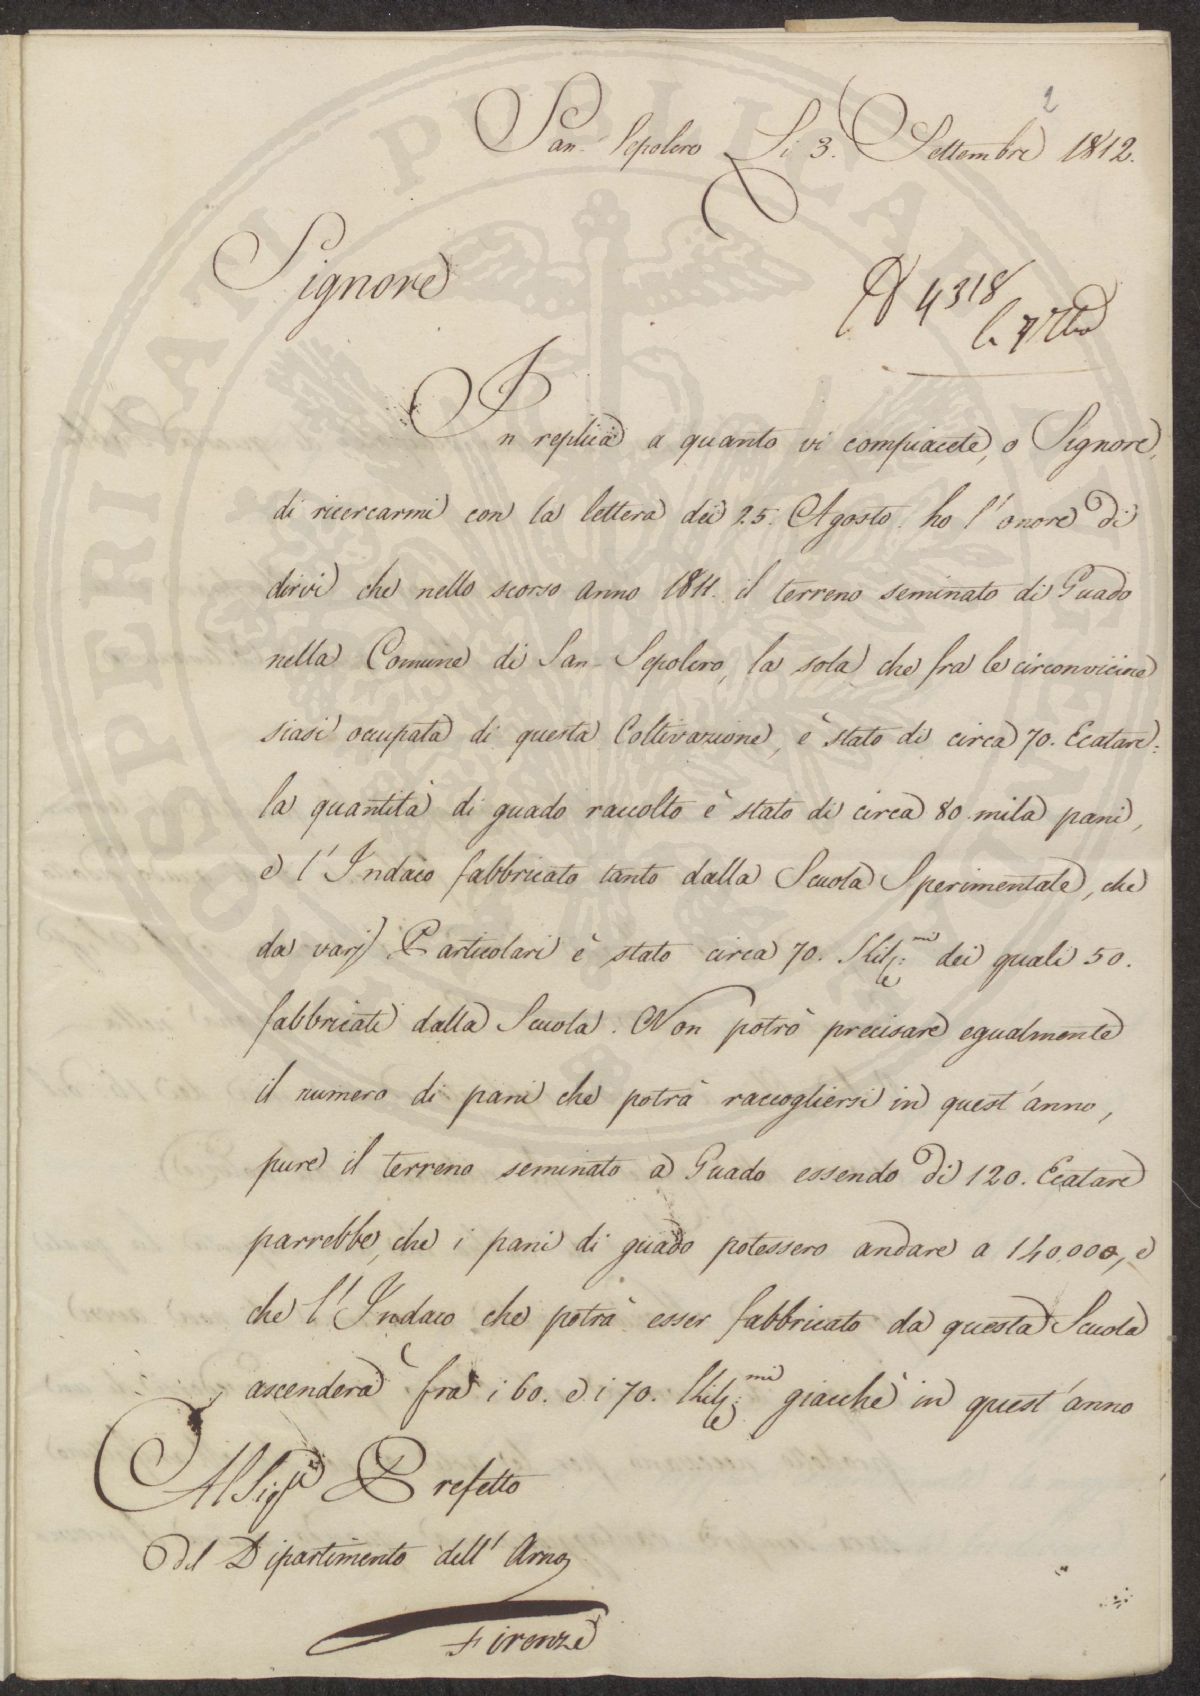 2
San-Sepolcro Li 3. Settembre 1812.
Signore
N 4318
7 7bre
In replica a quanto vi compiacete, o Signore,
di ricercarmi con la lettera dei 25. Agosto ho l'onore di
dirvi che nello scorso anno 1811. il terreno seminato di Guado
nella Comune di San-Sepolcro, la sola che fra le circonvicine
siasi occupata di questa Coltivazione, è stato di circa 70. Ecatare:
la quantità di guado raccolto è stato di circa 80 mila pani,
e l'Indaco fabbricato tanto dalla Scuola Sperimentale, che
da varj Particolari è stato circa 70. Kil:mi dei quali 50.
fabbricati dalla Scuola. Non potrò precisare egualmente
il numero di pani che potrà raccogliersi in quest'anno,
pure il terreno seminato a Guado essendo di 120. Ecatare
parrebbe, che i pani di guado potessero andare a 140.000, e
che l'Indaco che potrà esser fabbricato da questa Scuola
ascenderà fra i 60. e i 70. Kil:mi giacchè in quest'anno
Al Sigre Prefetto
del Dipartimento dell'Arno
Firenze